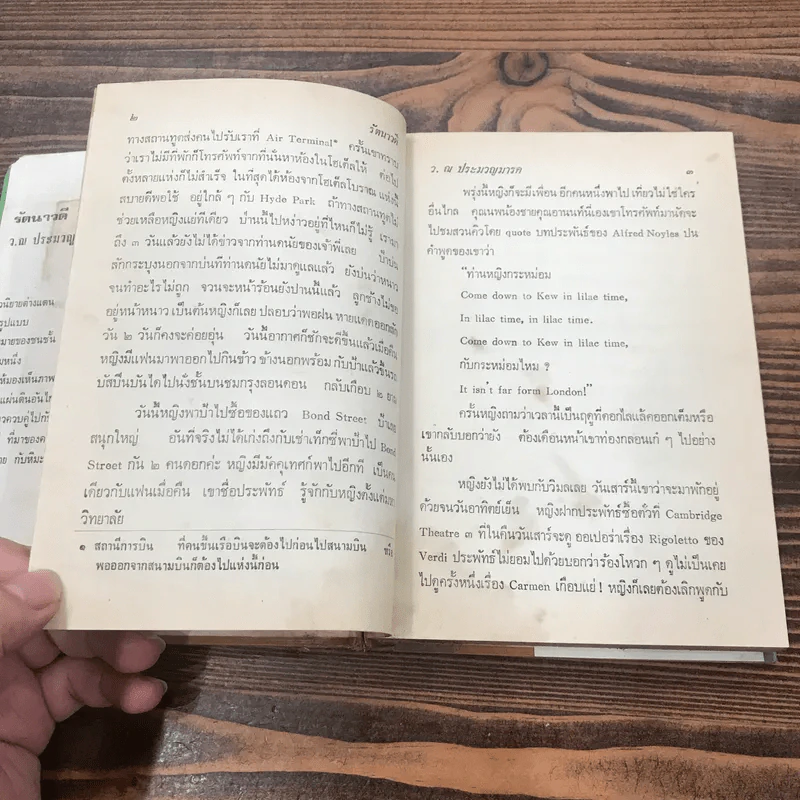 รัตนาวดี
ว. ณ ประมวญ
วนิยายต่างแดน
รูปแบบ
มายของชนชั้น
หนึ่ง
ให้มองเห็นภาพ
แผ่นดินอันไก
วควบคู่ไปกั
ที่มาของค
าย กับหิมะ
๒
รัตนาวดี
ทางสถานทูตส่งคนไปรับเราที่ Air Terminal* ครั้นเขาทราบ
ว่าเราไม่มีที่พักก็โทรศัพท์จากที่นั่นหาห้องในโฮเต็ลให้ ต่อไป
ตั้งหลายแห่งก็ไม่สำเร็จ ในที่สุดได้ห้องจากโฮเต็ลโบราณ แห่งนี้
สบายดีพอใช้ อยู่ใกล้ ๆ กับ Hyde Park ถ้าทางสถานทูตไม่
ช่วยเหลือหญิงแย่ทีเดียว ป่านนี้ไปหง่าวอยู่ที่ไหนก็ไม่รู้ เรามา
ถึง ๓ วันแล้วยังไม่ได้ข่าวจากท่านดนัยของเจ้าพี่เลย ป้าบ่น
สักกระบุงนอกจากบ่นที่ท่านดนัยไม่มาดูแลแล้ว ยังบ่นว่าหนาว
จนทำอะไรไม่ถูก จวนจะหน้าร้อนยังปานนี้แล้ว ลูกช้างไม่ขอ
อยู่หน้าหนาว เป็นต้นหญิงก็เลย ปลอบว่าพอฝน หายแดดออกสัก
วัน ๒ วันก็คงจะค่อยอุ่น วันนี้อากาศก็ชักจะดีขึ้นแล้วเมื่อคืน
หญิงมีแฟนมาพาออกไปกินข้าว ข้างนอกพร้อม กับป้าแล้วขึ้นรถ
บัสปีนบันไดไปนั่งชั้นบนชมกรุงลอนดอน กลับเกือบ ๒ ยาม
วันนี้หญิงพาป้าไปซื้อของแถว Bond Street ป้าเลย
สนุกใหญ่ อันที่จริงไม่ได้เก่งถึงกับเช่าแท็กซี่พาป้าไป Bond
Street กัน ๒ คนดอกค่ะ หญิงมีมัคคุเทศก์พาไปอีกที เป็นคน
เดียวกับแฟนเมื่อคืน เขาชื่อประพัทธ์ รู้จักกับหญิงตั้งแต่มหา
วิทยาลัย
๑ สถานีการบิน ที่คนขึ้นเรือบินจะต้องไปก่อนไปสนามบิน
พอออกจากสนามบินก็ต้องไปแห่งนี้ก่อน
ว. ณ ประมวญมารค
๓
พรุ่งนี้หญิงก็จะมีเพื่อน อีกคนหนึ่งพาไป เที่ยวไม่ใช่ใคร
อื่นไกล คุณนพน้องชายคุณอานนท์ที่เองเขาโทรศัพท์มานัดจะ
ไปชมสวนคิวโดย quote บทประพันธ์ของ Alfred Noyles ปน
คำพูดของเขาว่า
"ท่านหญิงกระหม่อม
Come down to Kew in lilac time,
In lilac time, in lilac time.
Come down to Kew in lilac time,
กับกระหม่อมไหม ?
It isn't far form London!"
ครั้นหญิงถามว่าเวลานี้เป็นฤดูที่ดอกไลแล้คออกเต็มหรือ
เขากลับบอกว่ายัง ต้องเดือนหน้าเขาท่องกลอนแก้ ๆ ไปอย่าง
นั้นเอง
หญิงยังไม่ได้พบกับวิมลเลย วันเสาร์นี้เขาว่าจะมาพักอยู่
ด้วยจนวันอาทิตย์เย็น หญิงฝากประพัทธ์ซื้อตั๋วที่ Cambridge
Theatre ๓ ที่ในคืนวันเสาร์จะดู ออเปอร่าเรื่อง Rigoletto ของ
Verdi ประพัทธ์ไม่ยอมไปด้วยบอกว่าร้องโหวก ๆ ดูไม่เป็นเคย
ไปดูครั้งหนึ่งเรื่อง Carmen เกือบแย่ ! หญิงก็เลยต้องเลิกพูดกับ